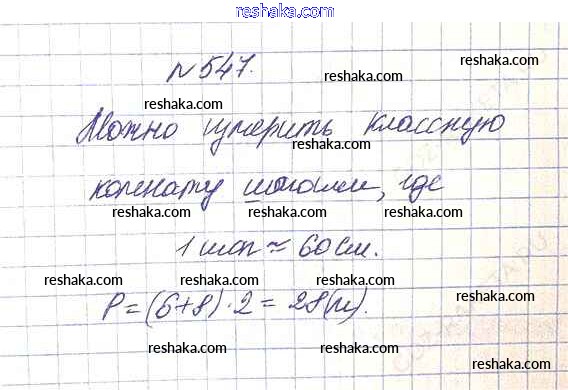 reshaka.com
№ 547.
reshaka.com reshaka.com
reshaka.com
Можно измерить классную
reshaka.com reshaka.com
комнату шагами, где
reshaka.com reshaka.com
1 шаг ≈ 60 см.
reshaka.com
reshaka.com reshaka.com
P = (6+8) · 2 = 28 (м).
reshaka.com
reshaka.com reshaka.com
reshaka.com